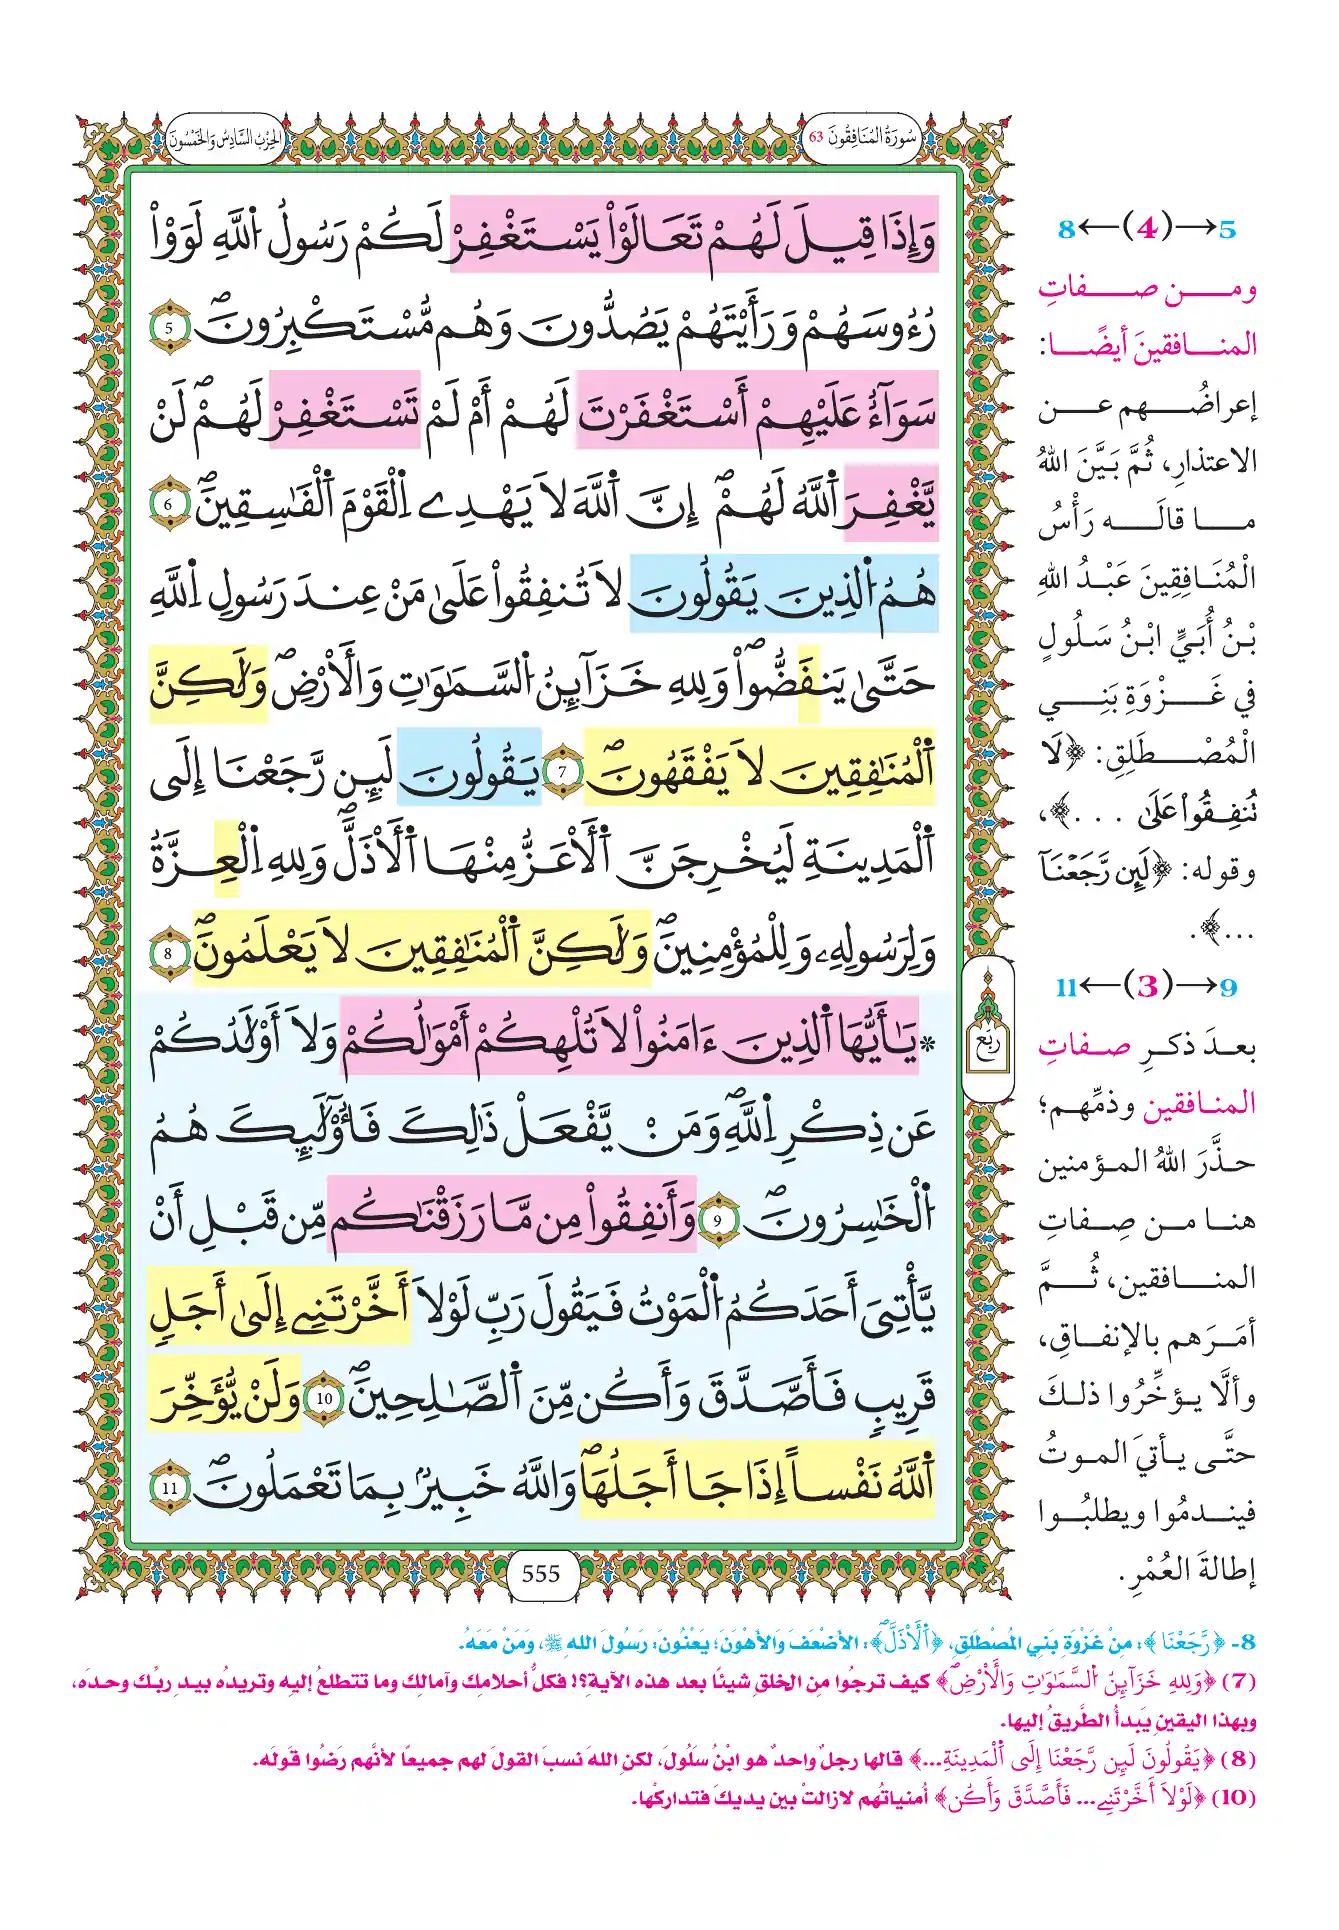 سُورَةُ المُنَافِقُونَ 63
الحِزْبُ السَّادِسُ وَالخَمْسُونَ
وَإِذَا قِيلَ لَهُمْ تَعَالَوْاْ يَسْتَغْفِرْ لَكُمْ رَسُولُ اُ۬للَّهِ لَوَوْاْ
رُءُوسَهُمْ وَرَأَيْتَهُمْ يَصُدُّونَ وَهُم مُّسْتَكْبِرُونَۖ 5
سَوَآءٌ عَلَيْهِمْ أَسْتَغْفَرْتَ لَهُمْ أَمْ لَمْ تَسْتَغْفِرْ لَهُمْۖ لَنْ
يَّغْفِرَ اَ۬للَّهُ لَهُمْۖ إِنَّ اَ۬للَّهَ لَا يَهْدِے اِ۬لْقَوْمَ اَ۬لْفَٰسِقِينَۖ 6
هُمُ اُ۬لذِينَ يَقُولُونَ لَا تُنفِقُواْ عَلَىٰ مَنْ عِندَ رَسُولِ اِ۬للَّهِ
حَتَّىٰ يَنفَضُّواْۖ وَلِلهِ خَزَآئِنُ اُ۬لسَّمَٰوَٰتِ وَالَارْضِۖ وَلَٰكِنَّ
اَ۬لْمُنَٰفِقِينَ لَا يَفْقَهُونَۖ 7 يَقُولُونَ لَئِن رَّجَعْنَا إِلَى
اَ۬لْمَدِينَةِ لَيُخْرِجَنَّ اَ۬لَاعَزُّ مِنْهَا اَ۬لَاذَلَّۖ وَلِلهِ اِ۬لْعِزَّةُ
وَلِرَسُولِهِۦ وَلِلْمُؤْمِنِينَۖ وَلَٰكِنَّ اَ۬لْمُنَٰفِقِينَ لَا يَعْلَمُونَۖ 8
۞ يَٰأَيُّهَا اَ۬لذِينَ ءَامَنُواْ لَا تُلْهِكُمْ أَمْوَٰلُكُمْ وَلَا أَوْلَٰدُكُمْ
عَن ذِكْرِ اِ۬للَّهِۖ وَمَنْ يَّفْعَلْ ذَٰلِكَ فَأُوْلَٰئِكَ هُمُ
اُ۬لْخَٰسِرُونَۖ 9 وَأَنفِقُواْ مِن مَّا رَزَقْنَٰكُم مِّن قَبْلِ أَنْ
يَّأْتِىَ أَحَدَكُمُ اُ۬لْمَوْتُ فَيَقُولَ رَبِّ لَوْلَا أَخَّرْتَنِے إِلَىٰ أَجَلٍ
قَرِيبٍ فَأَصَّدَّقَ وَأَكُن مِّنَ اَ۬لصَّٰلِحِينَۖ 10 وَلَنْ يُّؤَخِّرَ
اَ۬للَّهُ نَفْساً إِذَا جَا أَجَلُهَاۖ وَاللَّهُ خَبِيرُۢ بِمَا تَعْمَلُونَۖ 11
ربع
555
5→(4)←8
ومن صفاتِ
المنافقينَ أيضًا:
إعراضُهم عن
الاعتذارِ، ثُمَّ بَيَّنَ اللهُ
ما قالَه رَأْسُ
الْمُنَافِقِينَ عَبْدُ اللهِ
بْنُ أُبَيٍّ ابْنُ سَلُولٍ
في غَزْوَةِ بَنِي
الْمُصْطَلِقِ: ﴿لَا
تُنفِقُواْ عَلَىٰ ...﴾،
وقوله: ﴿لَئِن رَّجَعْنَآ
...﴾.
9→(3)←11
بعدَ ذكرِ صفاتِ
المنافقين وذمِّهم؛
حذَّرَ اللهُ المؤمنين
هنا من صِفاتِ
المنافقين، ثُمَّ
أمَرَهم بالإنفاقِ،
وألَّا يؤخِّرُوا ذلكَ
حتَّى يأتيَ الموتُ
فيندمُوا ويطلبُوا
إطالةَ العُمْرِ.
8- ﴿رَّجَعْنَا﴾: مِنْ غَزْوَةِ بَنِي المُصْطَلِقِ، ﴿اَ۬لَاذَلَّۖ﴾: الأَضْعَفَ وَالأَهْوَنَ؛ يَعْنُونَ: رَسُولَ اللهِ ﷺ، وَمَنْ مَعَهُ.
(7) ﴿وَلِلهِ خَزَآئِنُ اُ۬لسَّمَٰوَٰتِ وَالَارْضِۖ﴾ كيف ترجُوا مِن الخلقِ شيئًا بعد هذه الآيةِ؟! فكلُّ أحلامِك وآمالِك وما تتطلعُ إليه وتريدُه بيدِ ربِّك وحدَه،
وبهذا اليقينِ يَبدأُ الطَّريقُ إليها.
(8) ﴿يَقُولُونَ لَئِن رَّجَعْنَا إِلَى اَ۬لْمَدِينَةِ...﴾ قالها رجلٌ واحدٌ هو ابْنُ سَلُولَ، لكنِ اللهَ نسبَ القولَ لهم جميعاً لأنَّهم رَضُوا قَولَه.
(10) ﴿لَوْلَا أَخَّرْتَنِے... فَأَصَّدَّقَ وَأَكُن﴾ أمنياتُهم لازالتْ بين يديكَ فتداركْها.